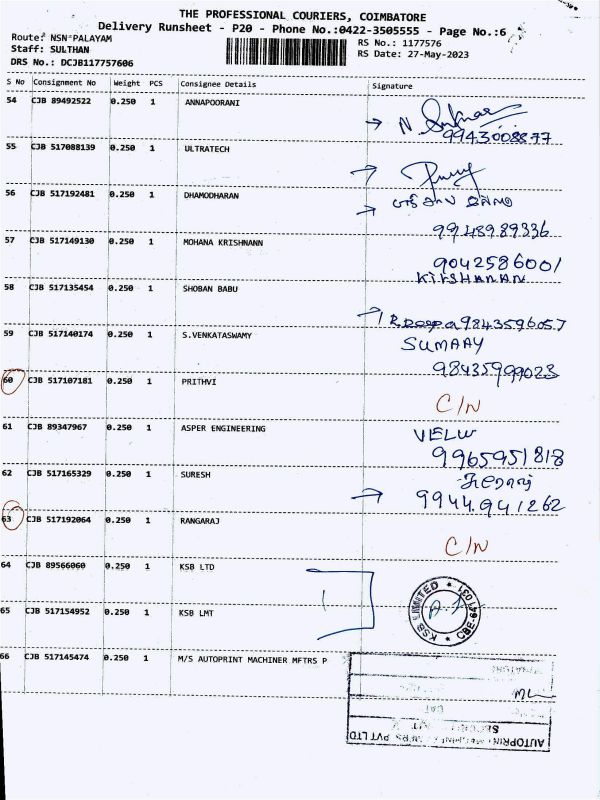 THE PROFESSIONAL COURIERS, COIMBATORE
Delivery Runsheet - P20 - Phone No.:0422-3505555 - Page No.:6
Route: NSN PALAYAM RS No.: 1177576
Staff: SULTHAN RS Date: 27-May-2023
DRS No.: DCJB117757606
S No Consignment No Weight PCS Consignee Details Signature
54 CJB 89492522 0.250 1 ANNAPOORANI N.
9943008877
55 CJB 517088139 0.250 1 ULTRATECH
56 CJB 517192481 0.250 1 DHAMODHARAN
9948989336
57 CJB 517149130 0.250 1 MOHANA KRISHNANN
9042586001
58 CJB 517135454 0.250 1 SHOBAN BABU
9843596057
59 CJB 517140174 0.250 1 S.VENKATASWAMY SUMAAY
60 CJB 517107181 0.250 1 PRITHVI
C/N
61 CJB 89347967 0.250 1 ASPER ENGINEERING VELU
9965951818
62 CJB 517165329 0.250 1 SURESH
9944.941262
63 CJB 517192064 0.250 1 RANGARAJ
C/N
64 CJB 89566060 0.250 1 KSB LTD
KSB LIMITED * CBE-641 031 *
65 CJB 517154952 0.250 1 KSB LMT
66 CJB 517145474 0.250 1 M/S AUTOPRINT MACHINER MFTRS P
AUTOPRINT MACHINERY MFRS PVT LTD